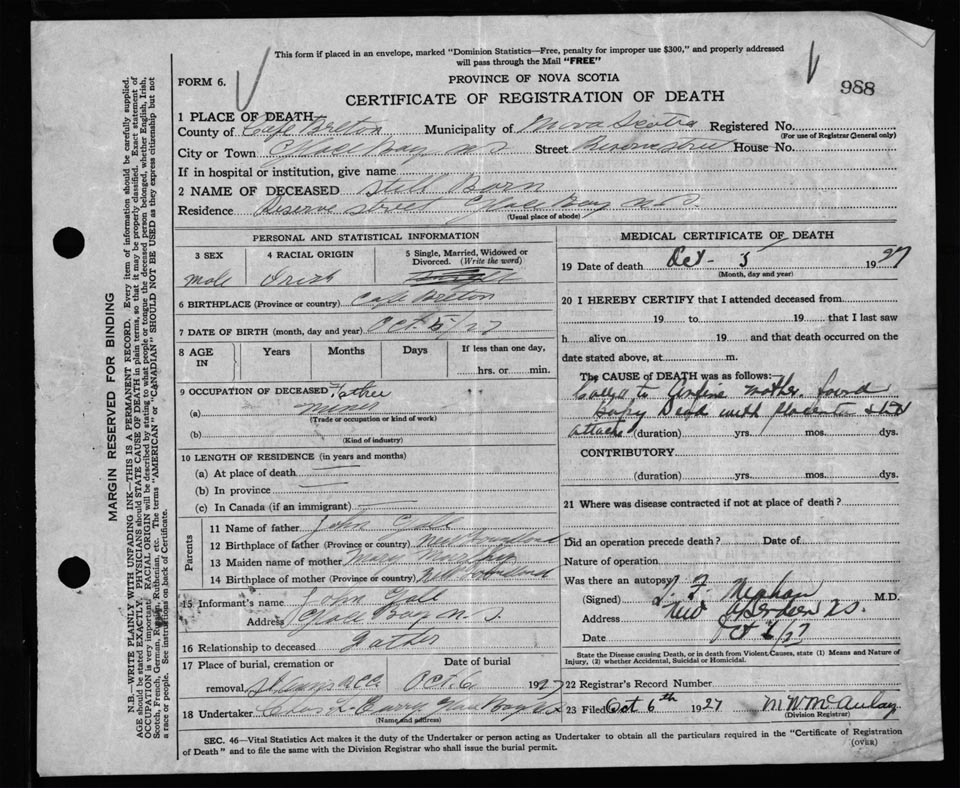 This form if placed in an envelope, marked "Dominion Statistics—Free, penalty for improper use $300," and properly addressed
will pass through the Mail "FREE"
FORM 6.
PROVINCE OF NOVA SCOTIA
988
CERTIFICATE OF REGISTRATION OF DEATH
1 PLACE OF DEATH
County of Cape Breton Municipality of Nova Scotia Registered No.
(For use of Registrar General only)
City or Town Glace Bay N S Street Reserve street House No.
If in hospital or institution, give name
2 NAME OF DECEASED Still Born
Residence Reserve street Glace Bay N.S.
(Usual place of abode)
PERSONAL AND STATISTICAL INFORMATION
3 SEX 4 RACIAL ORIGIN 5 Single, Married, Widowed or Divorced. (Write the word)
male Irish
6 BIRTHPLACE (Province or country) Cape Breton
7 DATE OF BIRTH (month, day and year) Oct. 5/27
8 AGE IN Years Months Days If less than one day,
hrs. or min.
9 OCCUPATION OF DECEASED Father
(a) Miner
(Trade or occupation or kind of work)
(b)
(Kind of industry)
10 LENGTH OF RESIDENCE (in years and months)
(a) At place of death
(b) In province
(c) In Canada (if an immigrant)
Parents
11 Name of father John
12 Birthplace of father (Province or country) Newfoundland
13 Maiden name of mother Mary
14 Birthplace of mother (Province or country) Newfoundland
15 Informant's name John
Address Glace Bay N. S.
16 Relationship to deceased Father
17 Place of burial, cremation or Date of burial
removal, Oct. 6 1927
18 Undertaker Chas Glace Bay
(Name and address)
MEDICAL CERTIFICATE OF DEATH
19 Date of death Oct - 5 1927
(Month, day and year)
20 I HEREBY CERTIFY that I attended deceased from
19 to 19 that I last saw
h alive on 19 and that death occurred on the
date stated above, at m.
The CAUSE of DEATH was as follows:
Called to Confine mother. found
Baby Dead with placenta
attache (duration) yrs. mos. dys.
CONTRIBUTORY
(duration) yrs. mos. dys.
21 Where was disease contracted if not at place of death?
Did an operation precede death? Date of
Nature of operation
Was there an autopsy
(Signed) M.D.
Address New Aberdeen
Date
State the Disease causing Death, or in death from Violent Causes, state (1) Means and Nature of
Injury, (2) whether Accidental, Suicidal or Homicidal.
22 Registrar's Record Number
23 Filed Oct 6th 1927 M W McAulay
(Division Registrar)
SEC. 46—Vital Statistics Act makes it the duty of the Undertaker or person acting as Undertaker to obtain all the particulars required in the "Certificate of Registration
of Death" and to file the same with the Division Registrar who shall issue the burial permit.
(OVER)
MARGIN RESERVED FOR BINDING
N.B.—WRITE PLAINLY WITH UNFADING INK—THIS IS A PERMANENT RECORD. Every item of information should be carefully supplied.
AGE should be stated EXACTLY. PHYSICIANS should STATE CAUSE OF DEATH in plain terms, so that it may be properly classified. Exact statement of
OCCUPATION is very important. RACIAL ORIGIN will be described by stating to what people or tongue the deceased person belonged, whether English, Irish,
Scotch, French, German, Russian, Ruthenian, etc. The terms "AMERICAN" or "CANADIAN" SHOULD NOT BE USED as they express citizenship but not
a race or people. See instructions on back of Certificate.